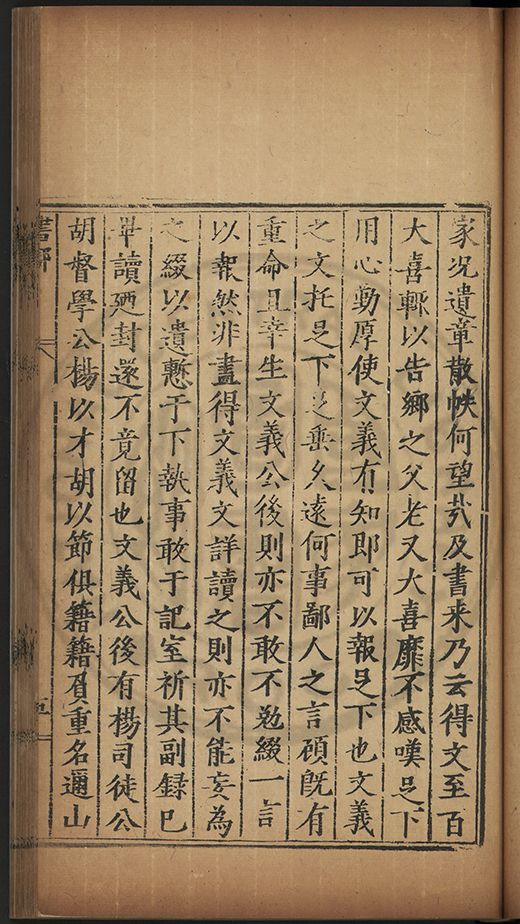 家况遺章散帙何望㢤及書来乃云得文至百
大喜輙以告郷之父老又大喜靡不感嘆足下
用心勤厚使文義有知即可以報足下也文義
之文托足下足垂久遠何事鄙人之言顧旣有
重命且幸生文義公後則亦不敢不勉綴一言
以報然非盡得文義文詳讀之則亦不能妄為
之綴以遺慙于下執事敢于記室祈其副録巳
畢讀廼封還不竟留也文義公後有楊司徒公
胡督學公楊以才胡以節俱籍籍負重名邇山